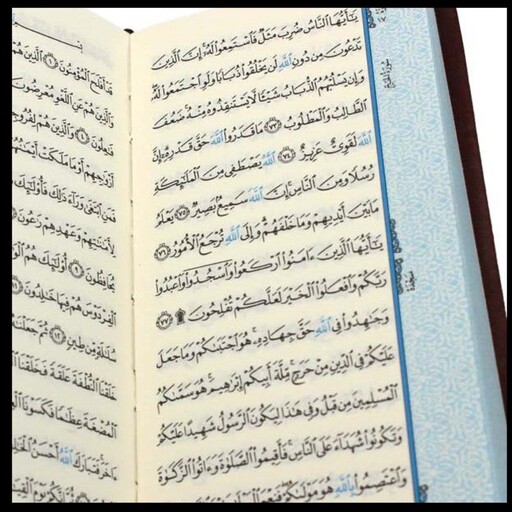 يَٰٓأَيُّهَا ٱلنَّاسُ ضُرِبَ مَثَلٌ فَٱسْتَمِعُوا۟ لَهُۥٓ إِنَّ ٱلَّذِينَ
تَدْعُونَ مِن دُونِ ٱللَّهِ لَن يَخْلُقُوا۟ ذُبَابًا وَلَوِ ٱجْتَمَعُوا۟ لَهُۥ
وَإِن يَسْلُبْهُمُ ٱلذُّبَابُ شَيْـًٔا لَّا يَسْتَنقِذُوهُ مِنْهُ ضَعُفَ
ٱلطَّالِبُ وَٱلْمَطْلُوبُ ٧٣ مَا قَدَرُوا۟ ٱللَّهَ حَقَّ قَدْرِهِۦٓ إِنَّ
ٱللَّهَ لَقَوِىٌّ عَزِيزٌ ٧٤ ٱللَّهُ يَصْطَفِى مِنَ ٱلْمَلَٰٓئِكَةِ
رُسُلًا وَمِنَ ٱلنَّاسِ إِنَّ ٱللَّهَ سَمِيعٌۢ بَصِيرٌ ٧٥ يَعْلَمُ
مَا بَيْنَ أَيْدِيهِمْ وَمَا خَلْفَهُمْ وَإِلَى ٱللَّهِ تُرْجَعُ ٱلْأُمُورُ ٧٦
يَٰٓأَيُّهَا ٱلَّذِينَ ءَامَنُوا۟ ٱرْكَعُوا۟ وَٱسْجُدُوا۟ وَٱعْبُدُوا۟
رَبَّكُمْ وَٱفْعَلُوا۟ ٱلْخَيْرَ لَعَلَّكُمْ تُفْلِحُونَ ۩ ٧٧
وَجَٰهِدُوا۟ فِى ٱللَّهِ حَقَّ جِهَادِهِۦ هُوَ ٱجْتَبَىٰكُمْ وَمَا جَعَلَ
عَلَيْكُمْ فِى ٱلدِّينِ مِنْ حَرَجٍ مِّلَّةَ أَبِيكُمْ إِبْرَٰهِيمَ هُوَ سَمَّىٰكُمُ
ٱلْمُسْلِمِينَ مِن قَبْلُ وَفِى هَٰذَا لِيَكُونَ ٱلرَّسُولُ شَهِيدًا عَلَيْكُمْ
وَتَكُونُوا۟ شُهَدَآءَ عَلَى ٱلنَّاسِ فَأَقِيمُوا۟ ٱلصَّلَوٰةَ وَءَاتُوا۟ ٱلزَّكَوٰةَ
وَٱعْتَصِمُوا۟ بِٱللَّهِ هُوَ مَوْلَىٰكُمْ فَنِعْمَ
سَجْدَة
قَدْ أَفْلَحَ ٱلْمُؤْمِنُونَ ١ ٱلَّذِينَ هُمْ
وَٱلَّذِينَ هُمْ عَنِ ٱللَّغْوِ مُعْرِضُونَ
فَٰعِلُونَ ٤ وَٱلَّذِينَ هُمْ لِفُرُوجِ
أَزْوَٰجِهِمْ أَوْ مَا مَلَكَتْ أَيْمَٰنُهُمْ
فَمَنِ ٱبْتَغَىٰ وَرَآءَ ذَٰلِكَ فَأُو۟لَٰٓئِكَ
لِأَمَٰنَٰتِهِمْ وَعَهْدِهِمْ رَٰعُونَ ٨
يُحَافِظُونَ ٩ أُو۟لَٰٓئِكَ هُمُ ٱلْوَ
ٱلْفِرْدَوْسَ هُمْ فِيهَا خَٰلِدُونَ ١١
سُلَٰلَةٍ مِّن طِينٍ ١٢ ثُمَّ جَعَلْنَٰ
خَلَقْنَا ٱلنُّطْفَةَ عَلَقَةً فَخَلَقْنَا
ٱلْمُضْغَةَ عِظَٰمًا فَكَسَوْنَا ٱلْ
ءَاخَرَ فَتَبَارَكَ ٱللَّهُ أَحْسَنُ ٱلْخَٰلِ
ثُمَّ إِنَّكُمْ يَوْمَ ٱلْقِ